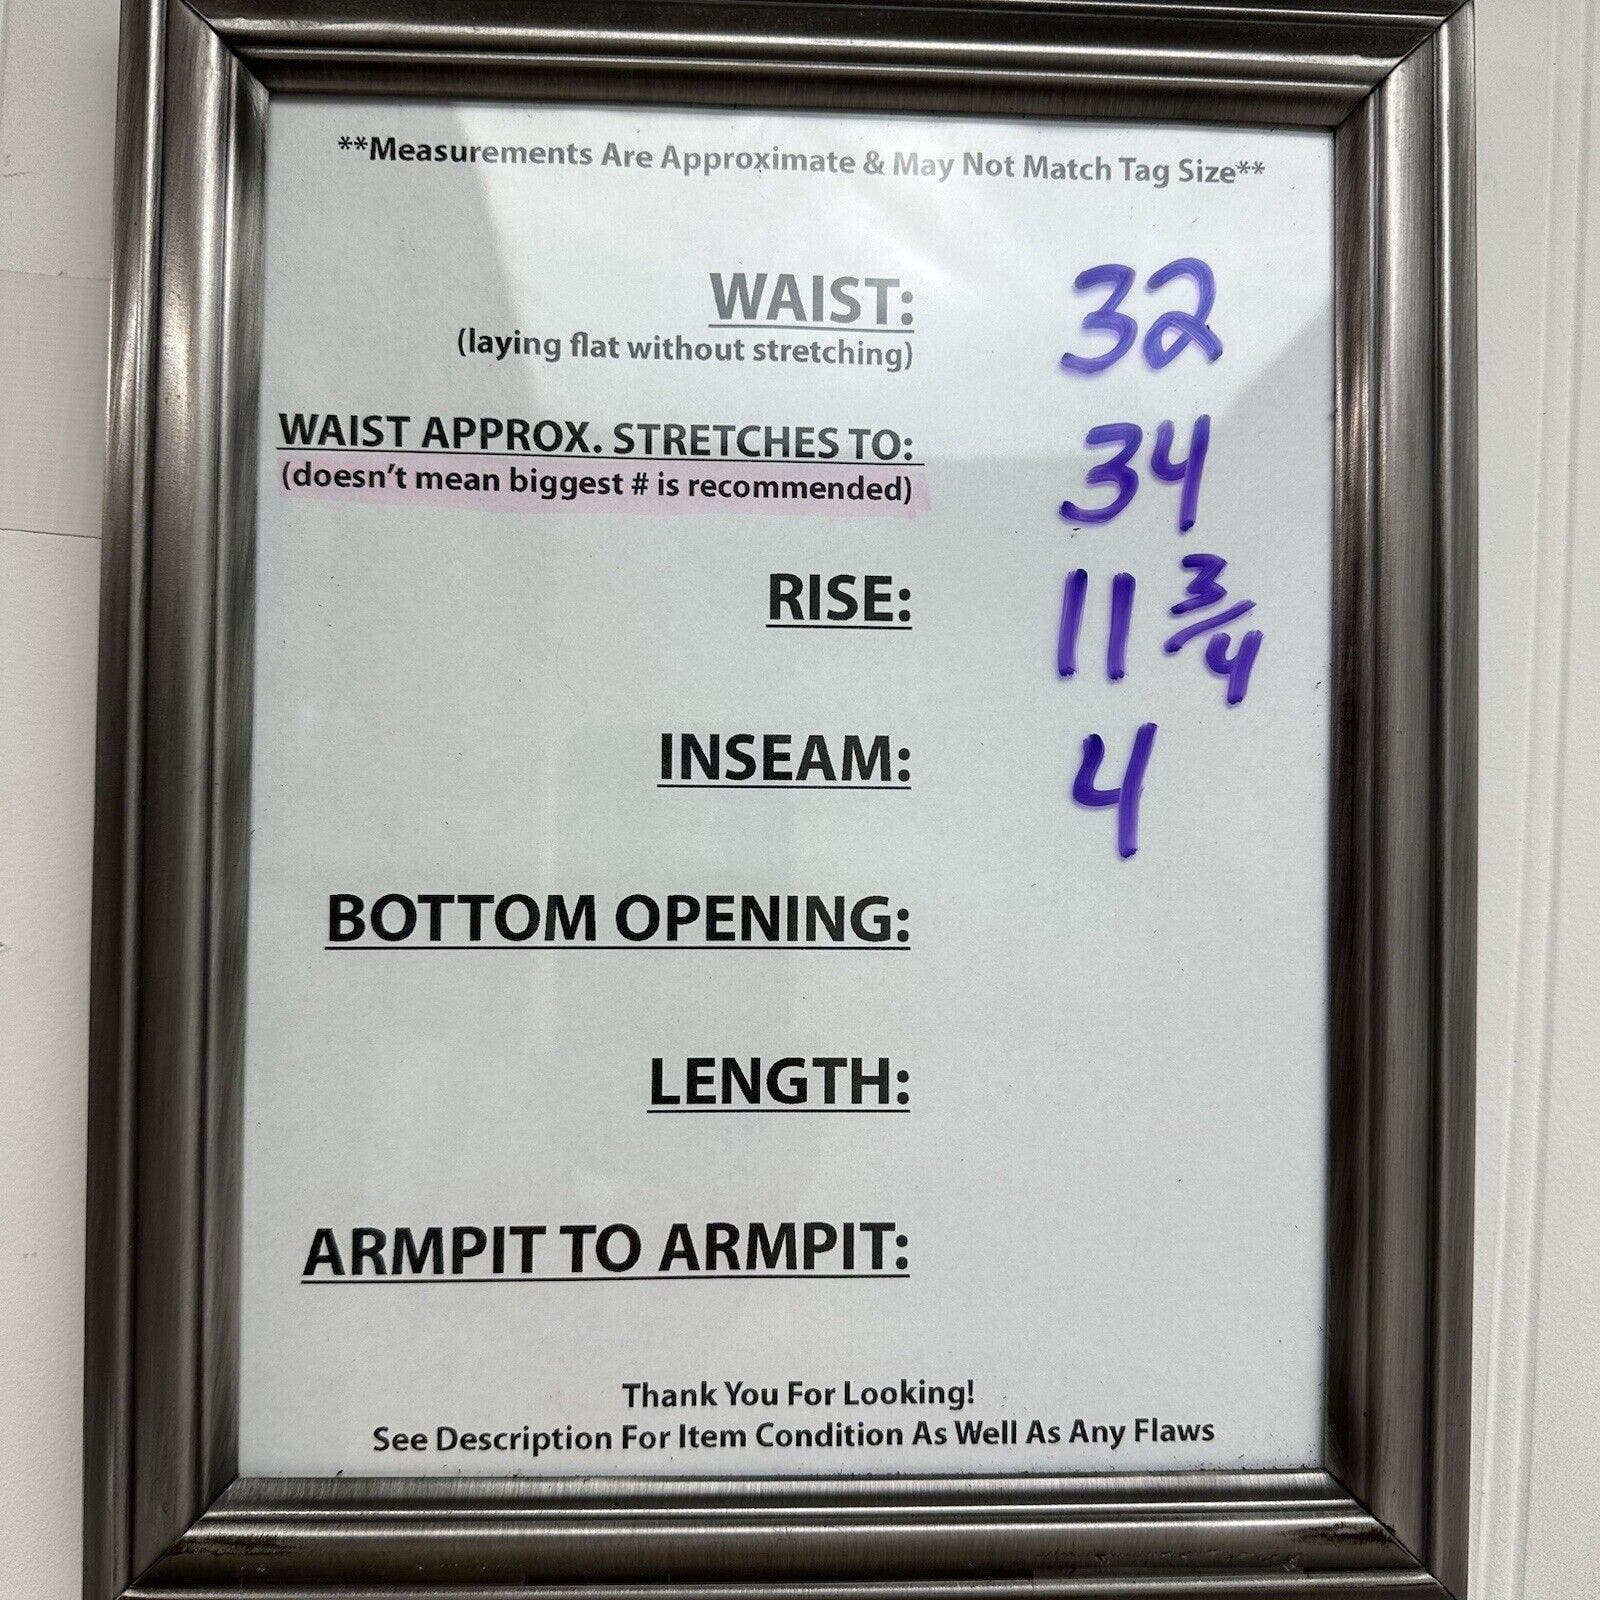 **Measurements Are Approximate & May Not Match Tag Size**
WAIST: 32
(laying flat without stretching)
WAIST APPROX. STRETCHES TO: 34
(doesn't mean biggest # is recommended)
RISE: 11 3/4
INSEAM: 4
BOTTOM OPENING:
LENGTH:
ARMPIT TO ARMPIT:
Thank You For Looking!
See Description For Item Condition As Well As Any Flaws